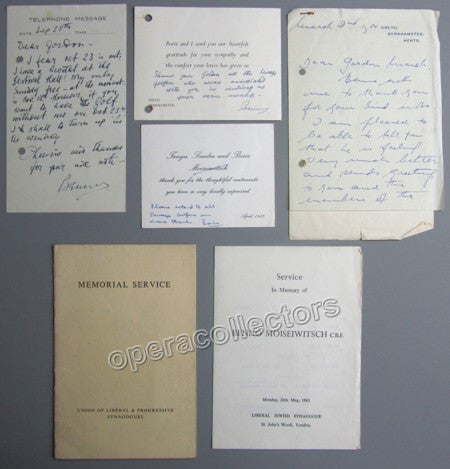 TELEPHONE MESSAGE
DATE Sep 19th TIME
Dear Gordon -
I fear Oct 23 is out,
I have a Recital at the
Festival Hall! My only
Sunday free at the moment
is Nov 13th However, if you
want to have the Golf
without me we bet
I shall to turn up in
the evening
Cheerio and thanks
for your nice note -
Benno
Boris and I send you our heartfelt
gratitude for your sympathy and
the comfort your letter has given us
Thank you
golfers who
with you in
Benno
Tanya, Sandra and Boris
Moiseiwitsch
thank you for the thoughtful sentiments
you have so very kindly expressed.
Please extend to all
Savage Golfers our
thanks
April, 1963
March 2nd
BERKHAMSTED,
HERTS.
Dear Gordon
Benno asks
me to thank you
for your kind
I am pleased to
be able to tell you
that he is feeling
very much better
and sends greetings
to you and the
members of the
MEMORIAL SERVICE
UNION OF LIBERAL & PROGRESSIVE
SYNAGOGUES
Service
In Memory of
BENNO MOISEIWITSCH C.B.E.
Monday, 20th May, 1963
LIBERAL JEWISH SYNAGOGUE
St. John's Wood, London,
operacollectors